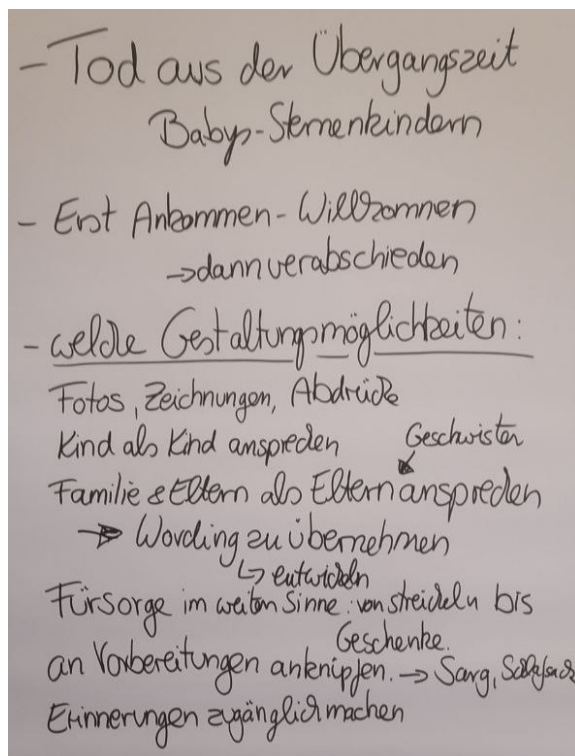 - Tod aus der Übergangszeit
Baby-Sternenkindern
- Erst Ankommen - Willkommen
→ dann verabschieden
- welche Gestaltungsmöglichkeiten:
Fotos, Zeichnungen, Abdrücke
Kind als Kind ansprechen
Geschwister
Familie & Eltern als Eltern ansprechen
→ Wording zu übernehmen
↳ entwickeln
Fürsorge im weiten Sinne: von streicheln bis
Geschenke.
an Vorbereitungen anknüpfen. → Sarg,
Erinnerungen zugänglich machen